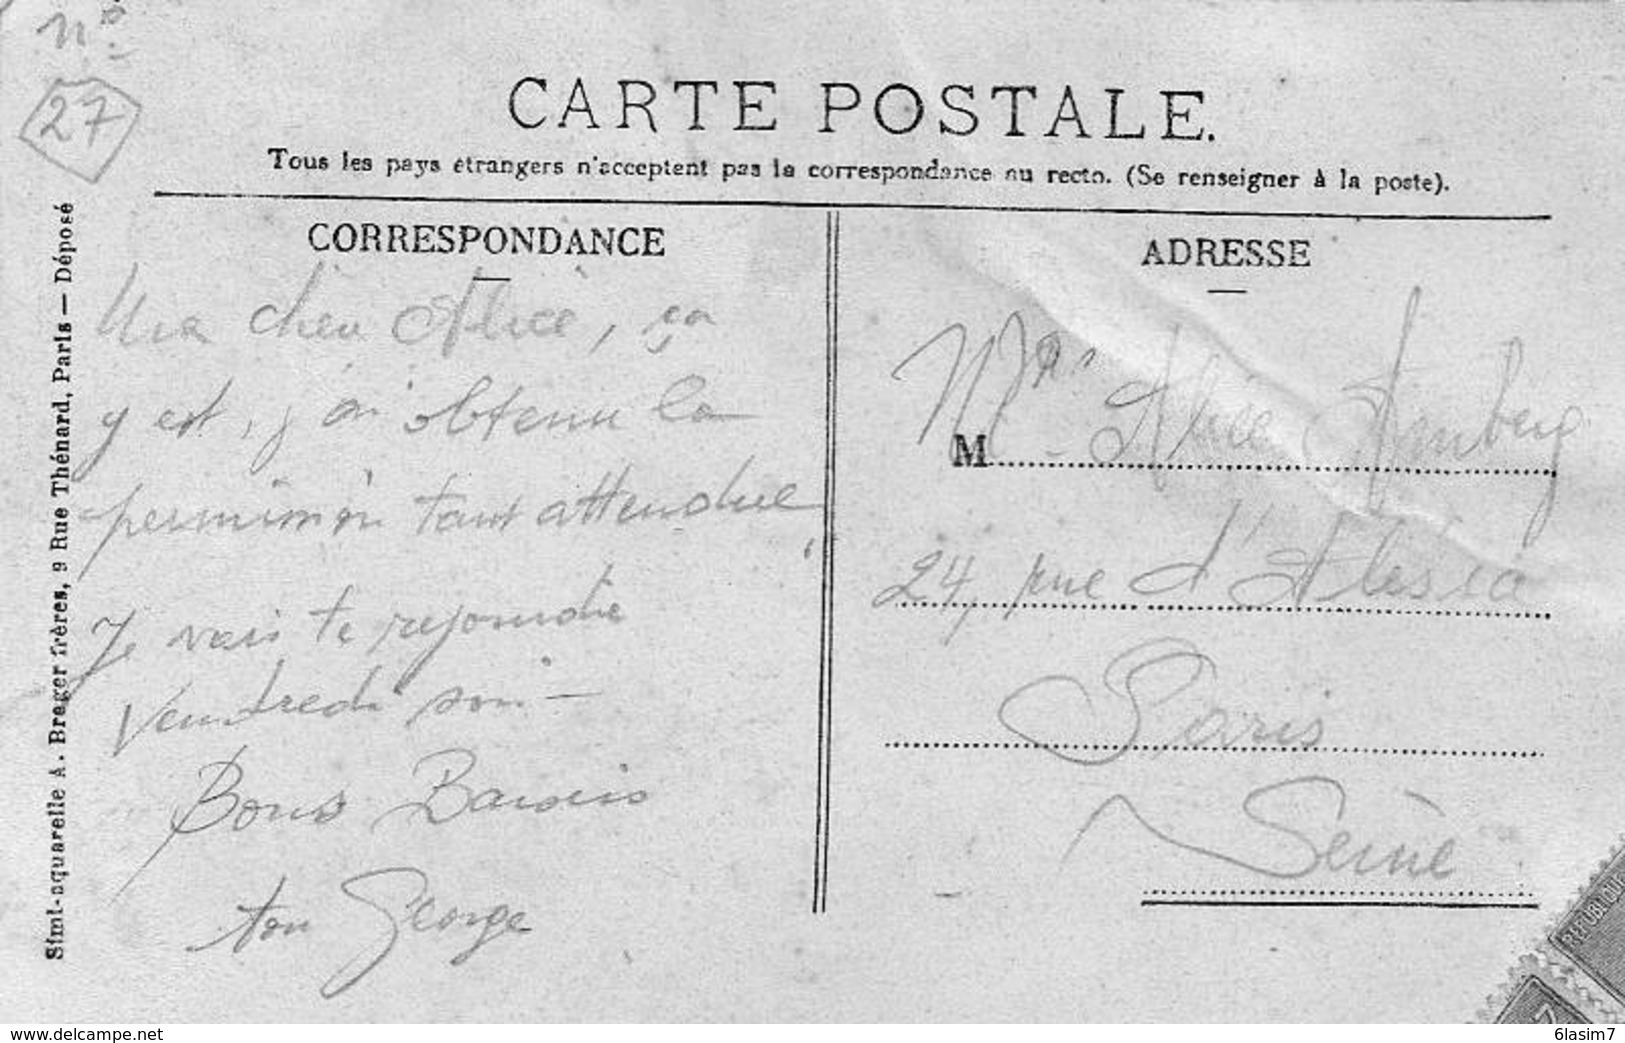 n°
27
CARTE POSTALE.
Tous les pays étrangers n'acceptent pas la correspondance au recto. (Se renseigner à la poste).
CORRESPONDANCE
Ma cheu Alice, ça
y est, j'ai obtenu la
permission tant attendue
Je vais te rejoindre
Vendredi soir —
Bons Baisers
ton George
ADRESSE
M
Alice
24, rue d'Alésia
Paris
Seine
Simi-aquarelle A. Breger frères, 9 Rue Thénard, Paris — Déposé
REPUBLIQUE
7
www.delcampe.net
6lasim7